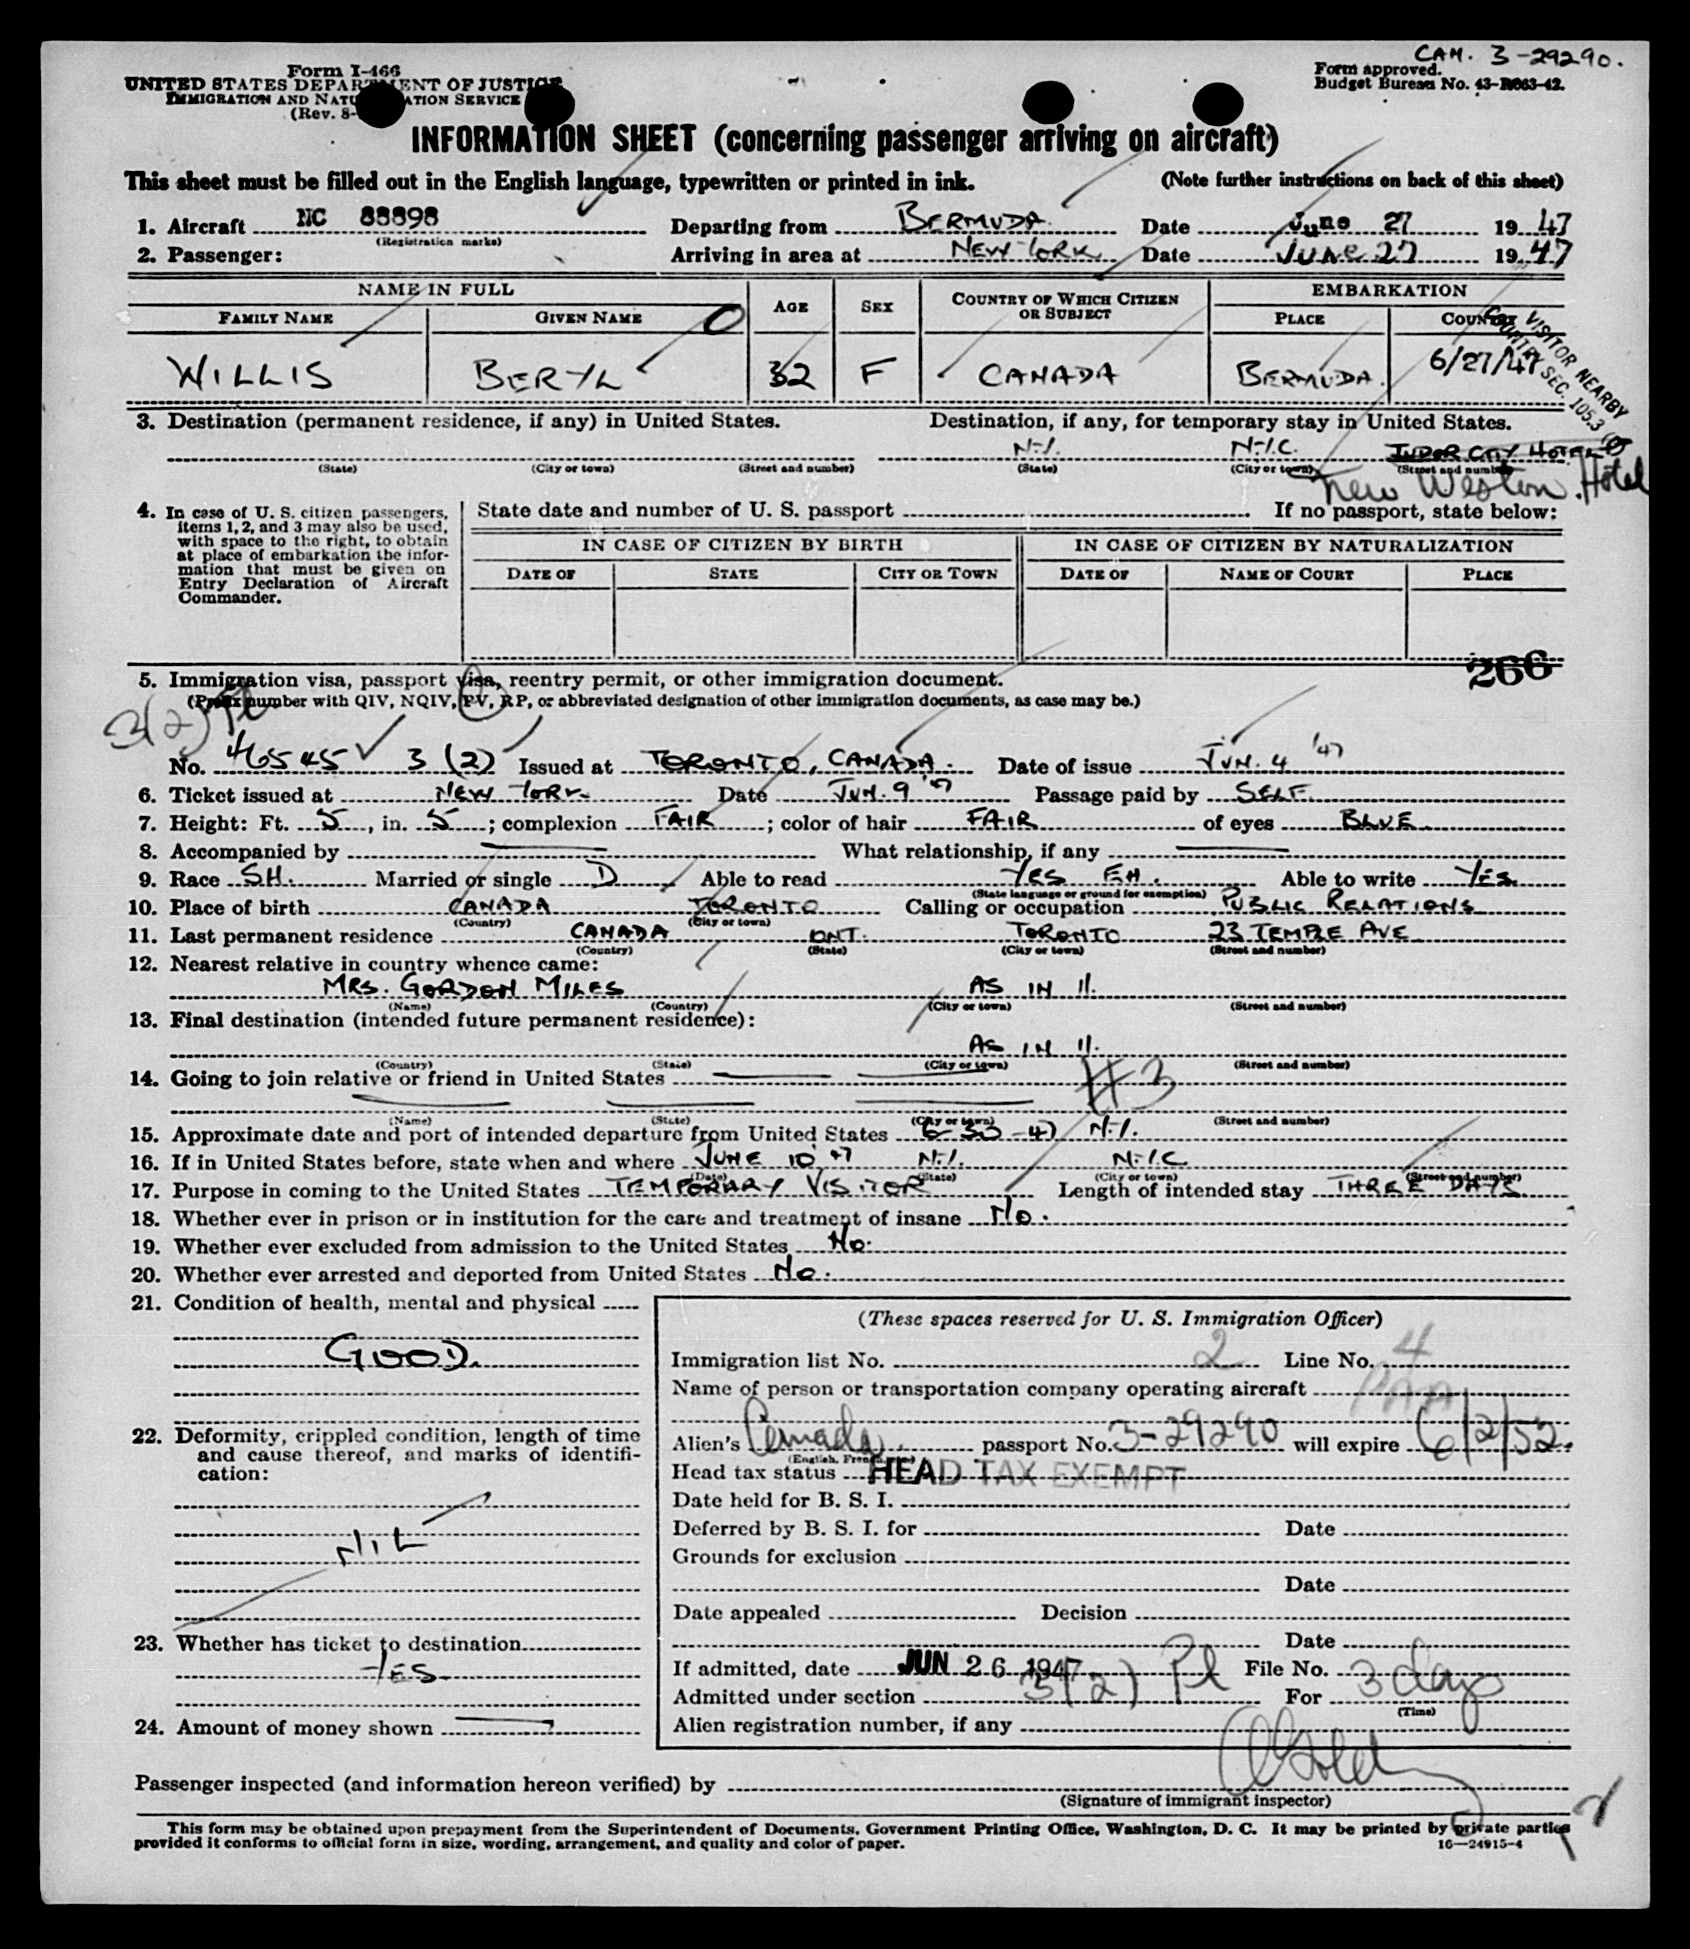 CAN. 3-29290.
Form I-466
UNITED STATES DEPARTMENT OF JUSTICE
IMMIGRATION AND NATURALIZATION SERVICE
(Rev. 8-
Form approved.
Budget Bureau No. 43-R063-42.
INFORMATION SHEET (concerning passenger arriving on aircraft)
This sheet must be filled out in the English language, typewritten or printed in ink. (Note further instructions on back of this sheet)
1. Aircraft NC 88898 Departing from BERMUDA Date June 27 1947
(Registration marks)
2. Passenger: Arriving in area at NEW YORK Date JUNE 27 1947
NAME IN FULL AGE SEX COUNTRY OF WHICH CITIZEN OR SUBJECT EMBARKATION
FAMILY NAME GIVEN NAME PLACE COUNTRY
WILLIS BERYL 32 F CANADA BERMUDA. 6/27/47
VISITOR NEARBY
COUNTRY SEC. 105.3
3. Destination (permanent residence, if any) in United States. Destination, if any, for temporary stay in United States.
N.Y. N.Y.C. TUDOR CITY HOTEL
(State) (City or town) (Street and number) (State) (City or town) (Street and number)
New Weston Hotel
4. In case of U. S. citizen passengers, items 1, 2, and 3 may also be used, with space to the right, to obtain at place of embarkation the information that must be given on Entry Declaration of Aircraft Commander.
State date and number of U. S. passport If no passport, state below:
IN CASE OF CITIZEN BY BIRTH IN CASE OF CITIZEN BY NATURALIZATION
DATE OF STATE CITY OR TOWN DATE OF NAME OF COURT PLACE
266
5. Immigration visa, passport visa, reentry permit, or other immigration document.
(Prefix number with QIV, NQIV, PV, RP, or abbreviated designation of other immigration documents, as case may be.)
3(2) Pl
No. 46545 3 (2) Issued at TORONTO, CANADA. Date of issue JUN. 4 '47
6. Ticket issued at NEW YORK Date JUN. 9 '47 Passage paid by SELF
7. Height: Ft. 5, in. 5; complexion FAIR; color of hair FAIR of eyes BLUE
8. Accompanied by — What relationship, if any —
9. Race SH. Married or single D Able to read YES EH. Able to write YES
(State language or ground for exemption)
10. Place of birth CANADA TORONTO Calling or occupation PUBLIC RELATIONS
(Country) (City or town)
11. Last permanent residence CANADA ONT. TORONTO 23 TEMPLE AVE
(Country) (State) (City or town) (Street and number)
12. Nearest relative in country whence came:
MRS. GORDON MILES AS IN 11.
(Name) (Country) (City or town) (Street and number)
13. Final destination (intended future permanent residence):
AS IN 11.
(Country) (State) (City or town) (Street and number)
14. Going to join relative or friend in United States — —
#3
(Name) (State) (City or town) (Street and number)
15. Approximate date and port of intended departure from United States 6-30-47 N.Y.
16. If in United States before, state when and where JUNE 10 '47 N.Y. N.Y.C
(Date) (State) (City or town) (Street and number)
17. Purpose in coming to the United States TEMPORARY VISITOR Length of intended stay THREE DAYS
18. Whether ever in prison or in institution for the care and treatment of insane No.
19. Whether ever excluded from admission to the United States No.
20. Whether ever arrested and deported from United States No.
21. Condition of health, mental and physical
GOOD.
22. Deformity, crippled condition, length of time and cause thereof, and marks of identification:
NIL
23. Whether has ticket to destination
YES
24. Amount of money shown —
(These spaces reserved for U. S. Immigration Officer)
Immigration list No. 2 Line No. 4
Name of person or transportation company operating aircraft PAA
Alien's Canada passport No. 3-29290 will expire 6/2/52.
(English, French, etc.)
Head tax status HEAD TAX EXEMPT
Date held for B. S. I.
Deferred by B. S. I. for Date
Grounds for exclusion
Date
Date appealed Decision
Date
If admitted, date JUN 26 1947 File No.
Admitted under section 3(2) Pl For 3 days
(Time)
Alien registration number, if any
Passenger inspected (and information hereon verified) by
(Signature of immigrant inspector)
This form may be obtained upon prepayment from the Superintendent of Documents, Government Printing Office, Washington, D. C. It may be printed by private parties
provided it conforms to official form in size, wording, arrangement, and quality and color of paper. 16—24915-4